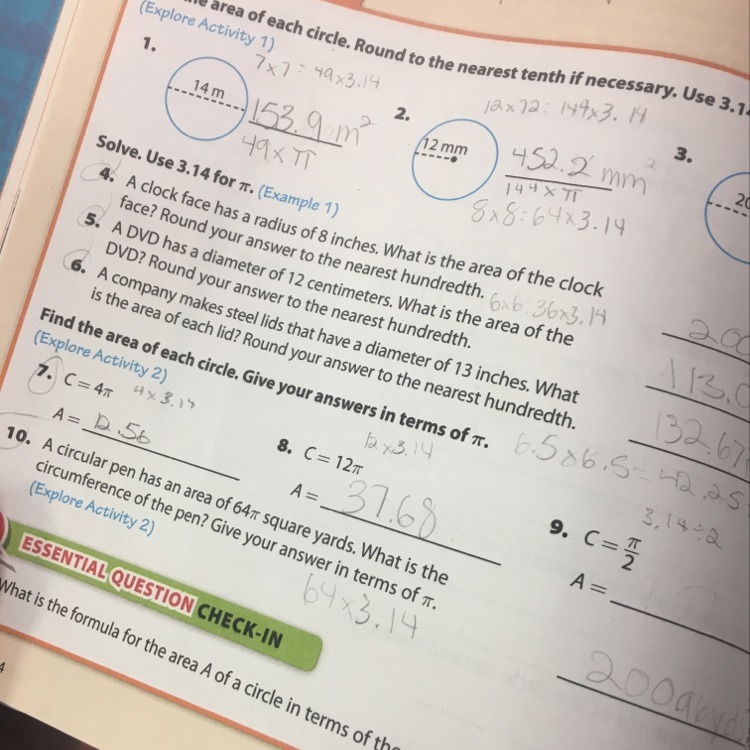 area of each circle. Round to the nearest tenth if necessary. Use 3.14
(Explore Activity 1)
7x7=49x3.14
12x12=144x3.14
1.
14 m
153.9 m²
49xπ
2.
12 mm
452.2 mm²
144xπ
3.
20
Solve. Use 3.14 for π. (Example 1)
8x8=64x3.14
4. A clock face has a radius of 8 inches. What is the area of the clock
face? Round your answer to the nearest hundredth.
200
5. A DVD has a diameter of 12 centimeters. What is the area of the
DVD? Round your answer to the nearest hundredth.
6x6=36x3.14
113.0
6. A company makes steel lids that have a diameter of 13 inches. What
is the area of each lid? Round your answer to the nearest hundredth.
132.67
6.5x6.5=42.25
Find the area of each circle. Give your answers in terms of π.
(Explore Activity 2)
7. C=4π
4x3.14
A= 12.56
8. C=12π
12x3.14
A= 37.68
9. C=π/2
3.14÷2
A=
10. A circular pen has an area of 64π square yards. What is the
circumference of the pen? Give your answer in terms of π.
(Explore Activity 2)
64x3.14
ESSENTIAL QUESTION CHECK-IN
What is the formula for the area A of a circle in terms of the